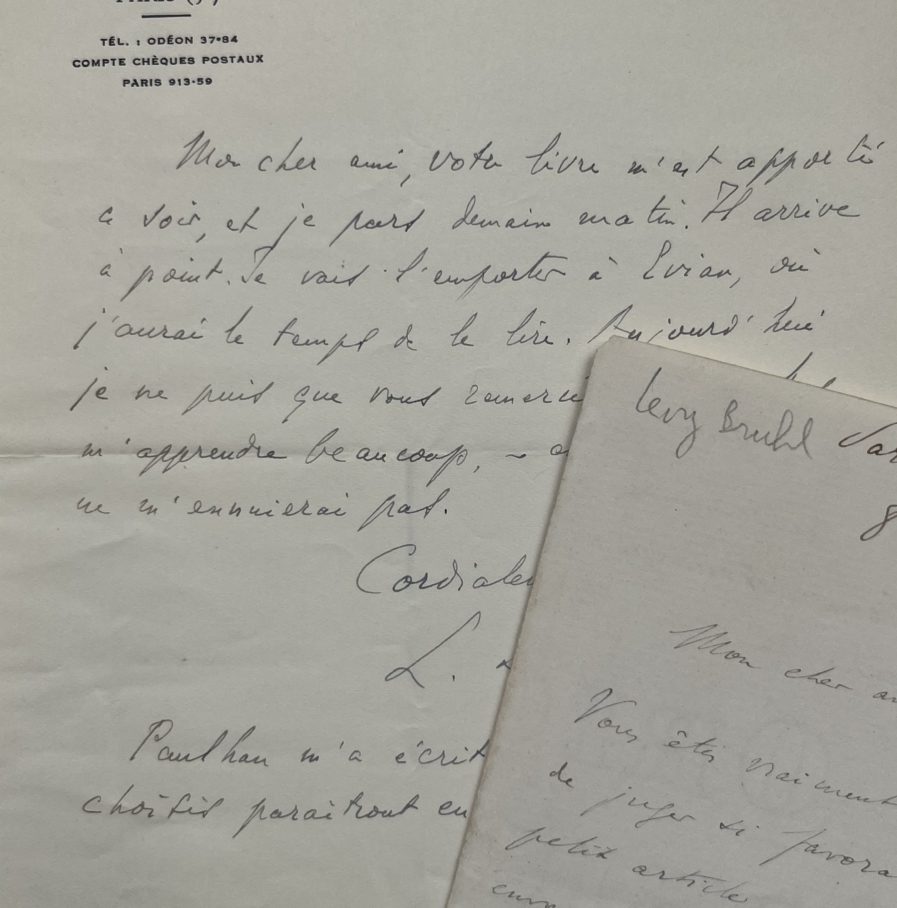 TÉL. : ODÉON 37-84
COMPTE CHÈQUES POSTAUX
PARIS 913-59
Mon cher ami, votre livre m'est apporté
ce soir, et je pars demain matin. Il arrive
à point. Je vais l'emporter à Evian, où
j'aurai le temps de le lire. Aujourd'hui
je ne puis que vous
m'apprendre beaucoup,
ne m'ennuierai pas.
L.
Paulhan m'a écrit
choisis paraîtront en
Levy Bruhl
8
Mon cher
Vous êtes vraiment
de juger si
petit article